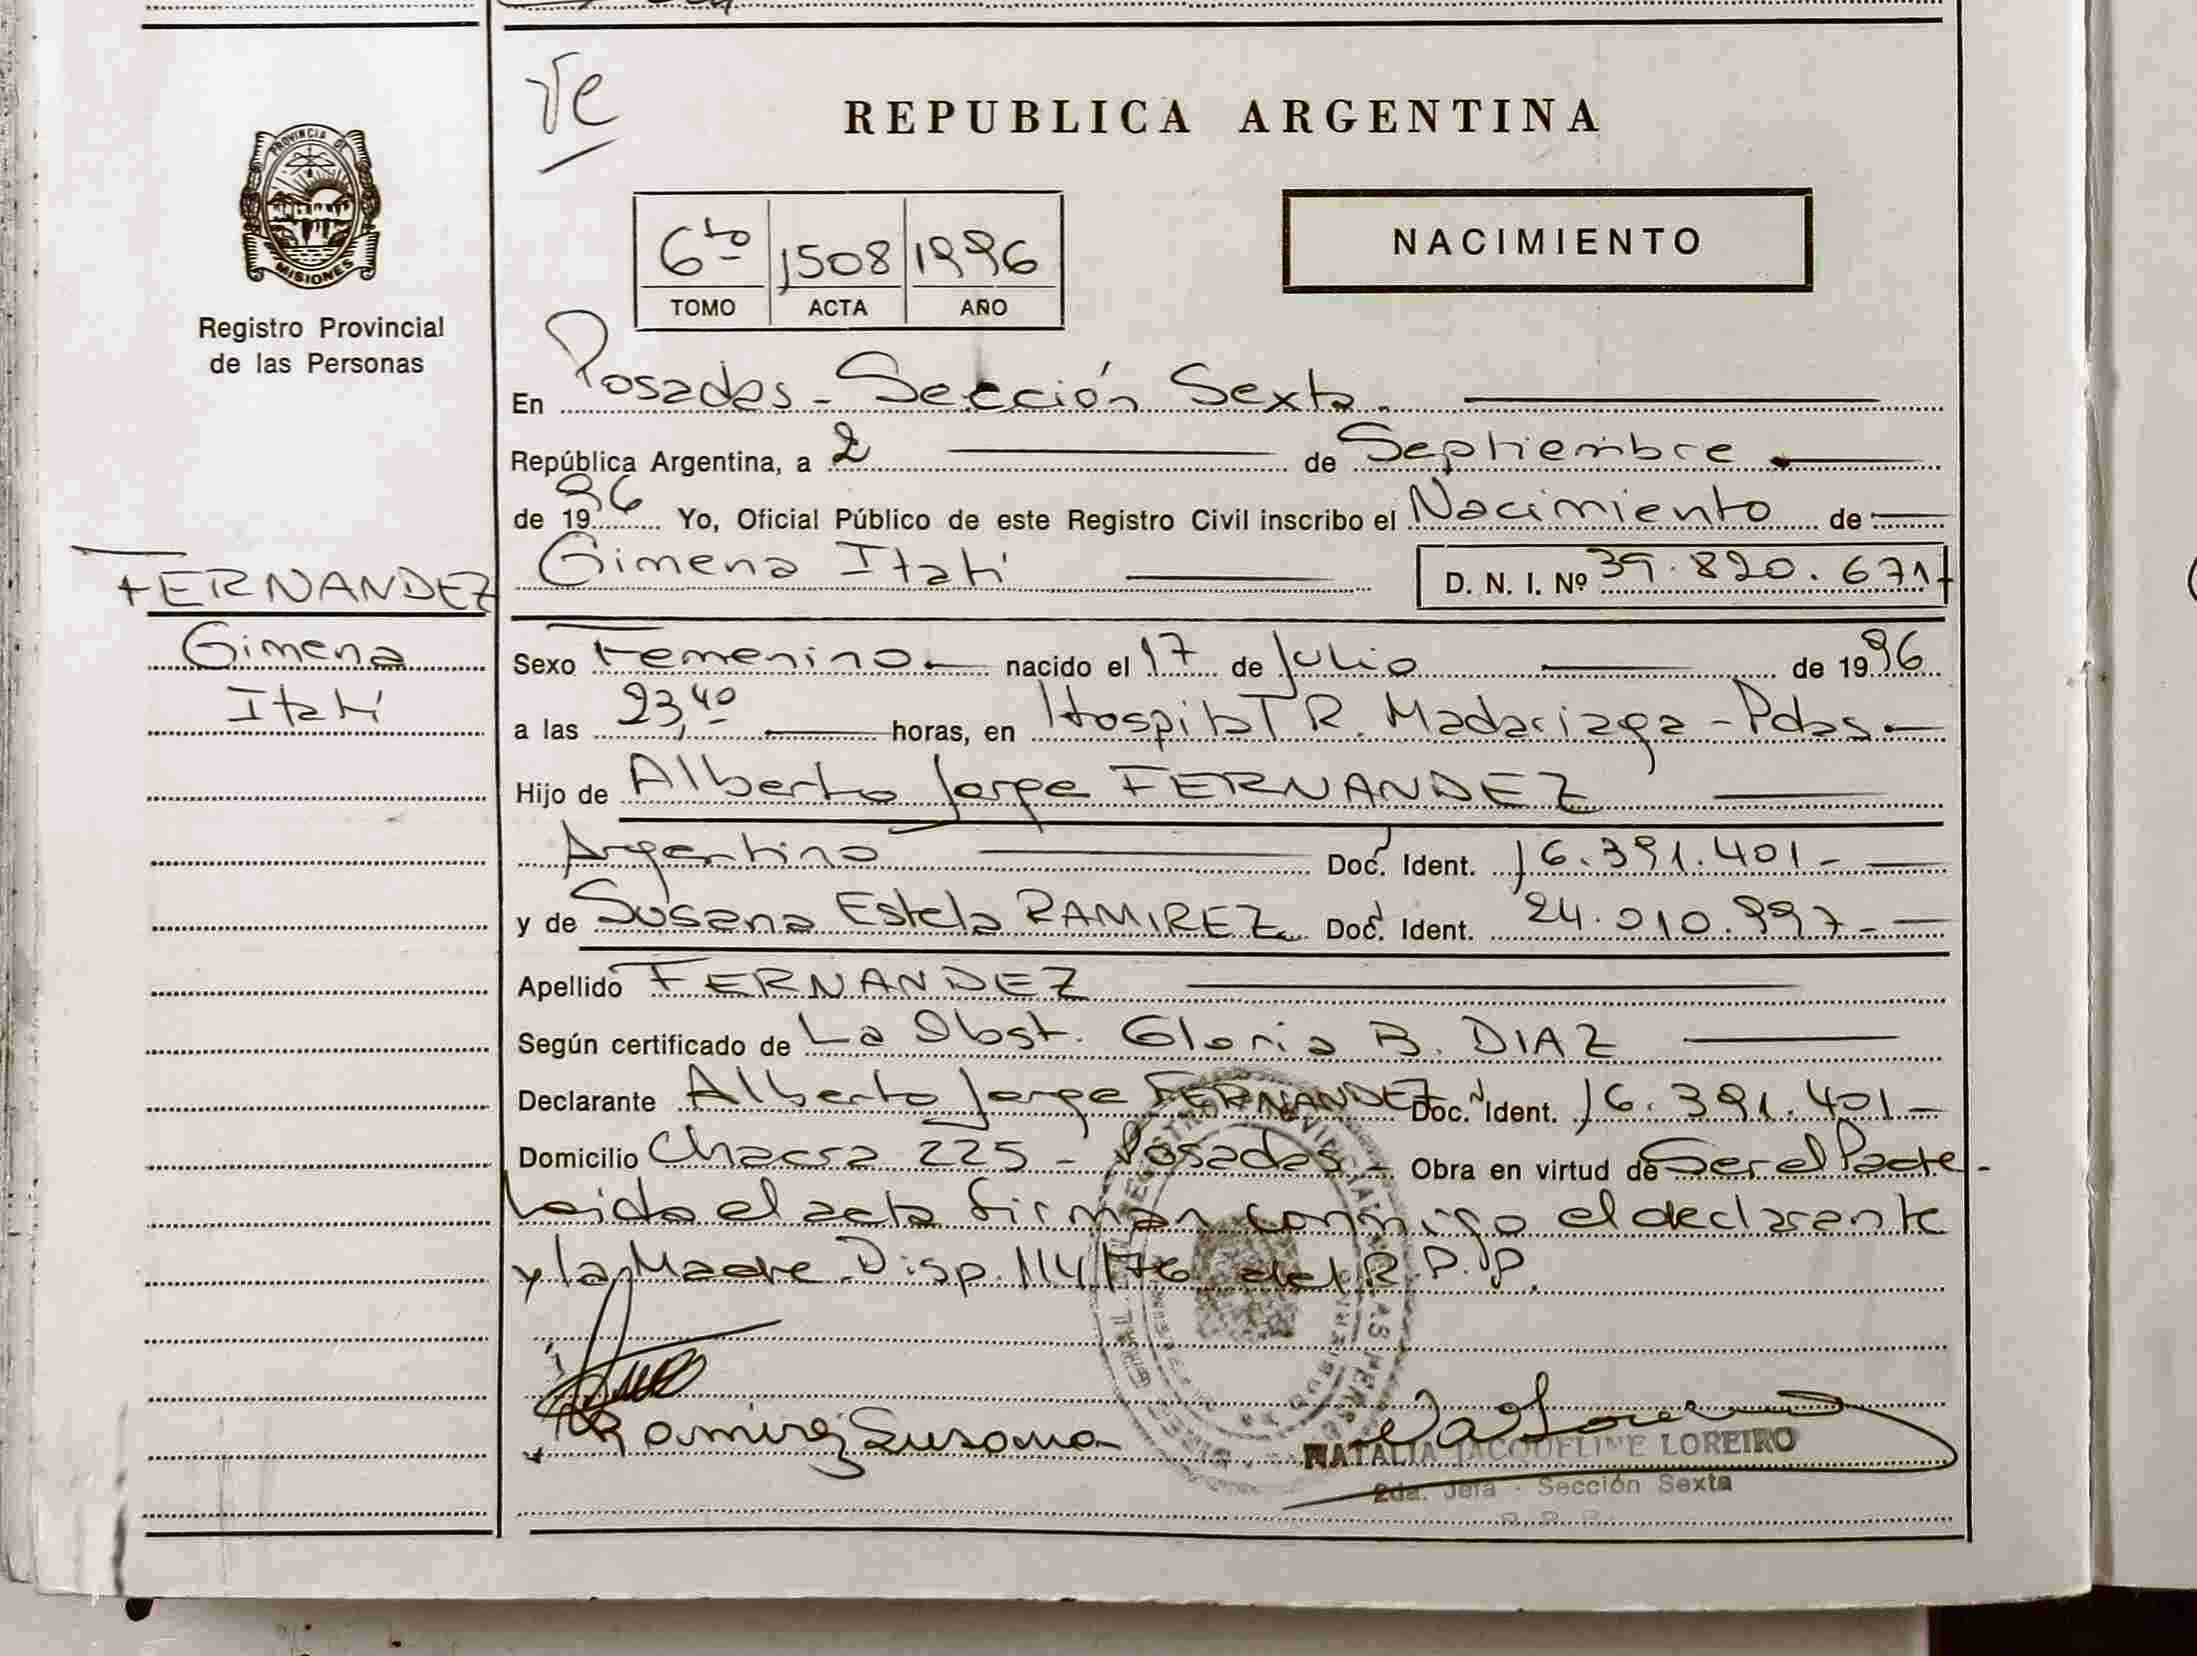 Ve
REPUBLICA ARGENTINA
PROVINCIA DE
MISIONES
Registro Provincial
de las Personas
6to 1508 1996
TOMO ACTA AÑO
NACIMIENTO
En Posadas - Sección Sexta.
República Argentina, a 2 de Septiembre
de 1996 Yo, Oficial Público de este Registro Civil inscribo el Nacimiento de
Gimena Itatí D. N. I. Nº 39.820.671
FERNANDEZ
Gimena
Itatí
Sexo Femenino. nacido el 17 de Julio de 1996
a las 23,40 horas, en Hospital R. Madariaga - Pdas.
Hijo de Alberto Jorge FERNANDEZ
Argentino Doc. Ident. 16.391.401-
y de Susana Estela RAMIREZ Doc. Ident. 24.010.997-
Apellido FERNANDEZ
Según certificado de La Obst. Gloria B. DIAZ
Declarante Alberto Jorge FERNANDEZ Doc. Ident. 16.391.401-
Domicilio Chacra 225 - Posadas - Obra en virtud de Ser el Padre -
Leida el acta firman conmigo el declarante
y la Madre. Disp. 114/76 del R.P.P.
Ramirez Susana
NATALIA JACQUELINE LOREIRO
2da. Jefa - Sección Sexta